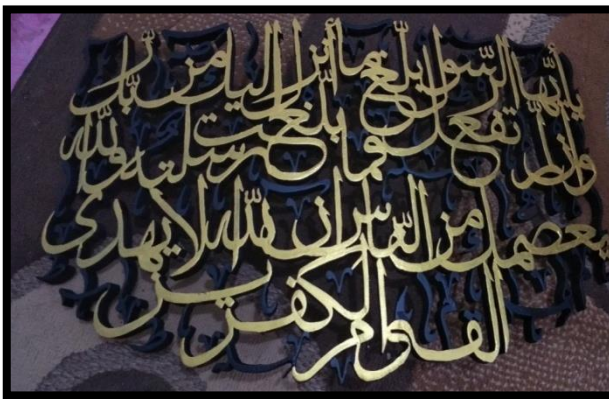 يأيها الرسول بلغ ما أنزل إليك من ربك
وإن لم تفعل فما بلغت رسلته والله
يعصمك من الناس إن الله لا يهدى
القوم الكفرين